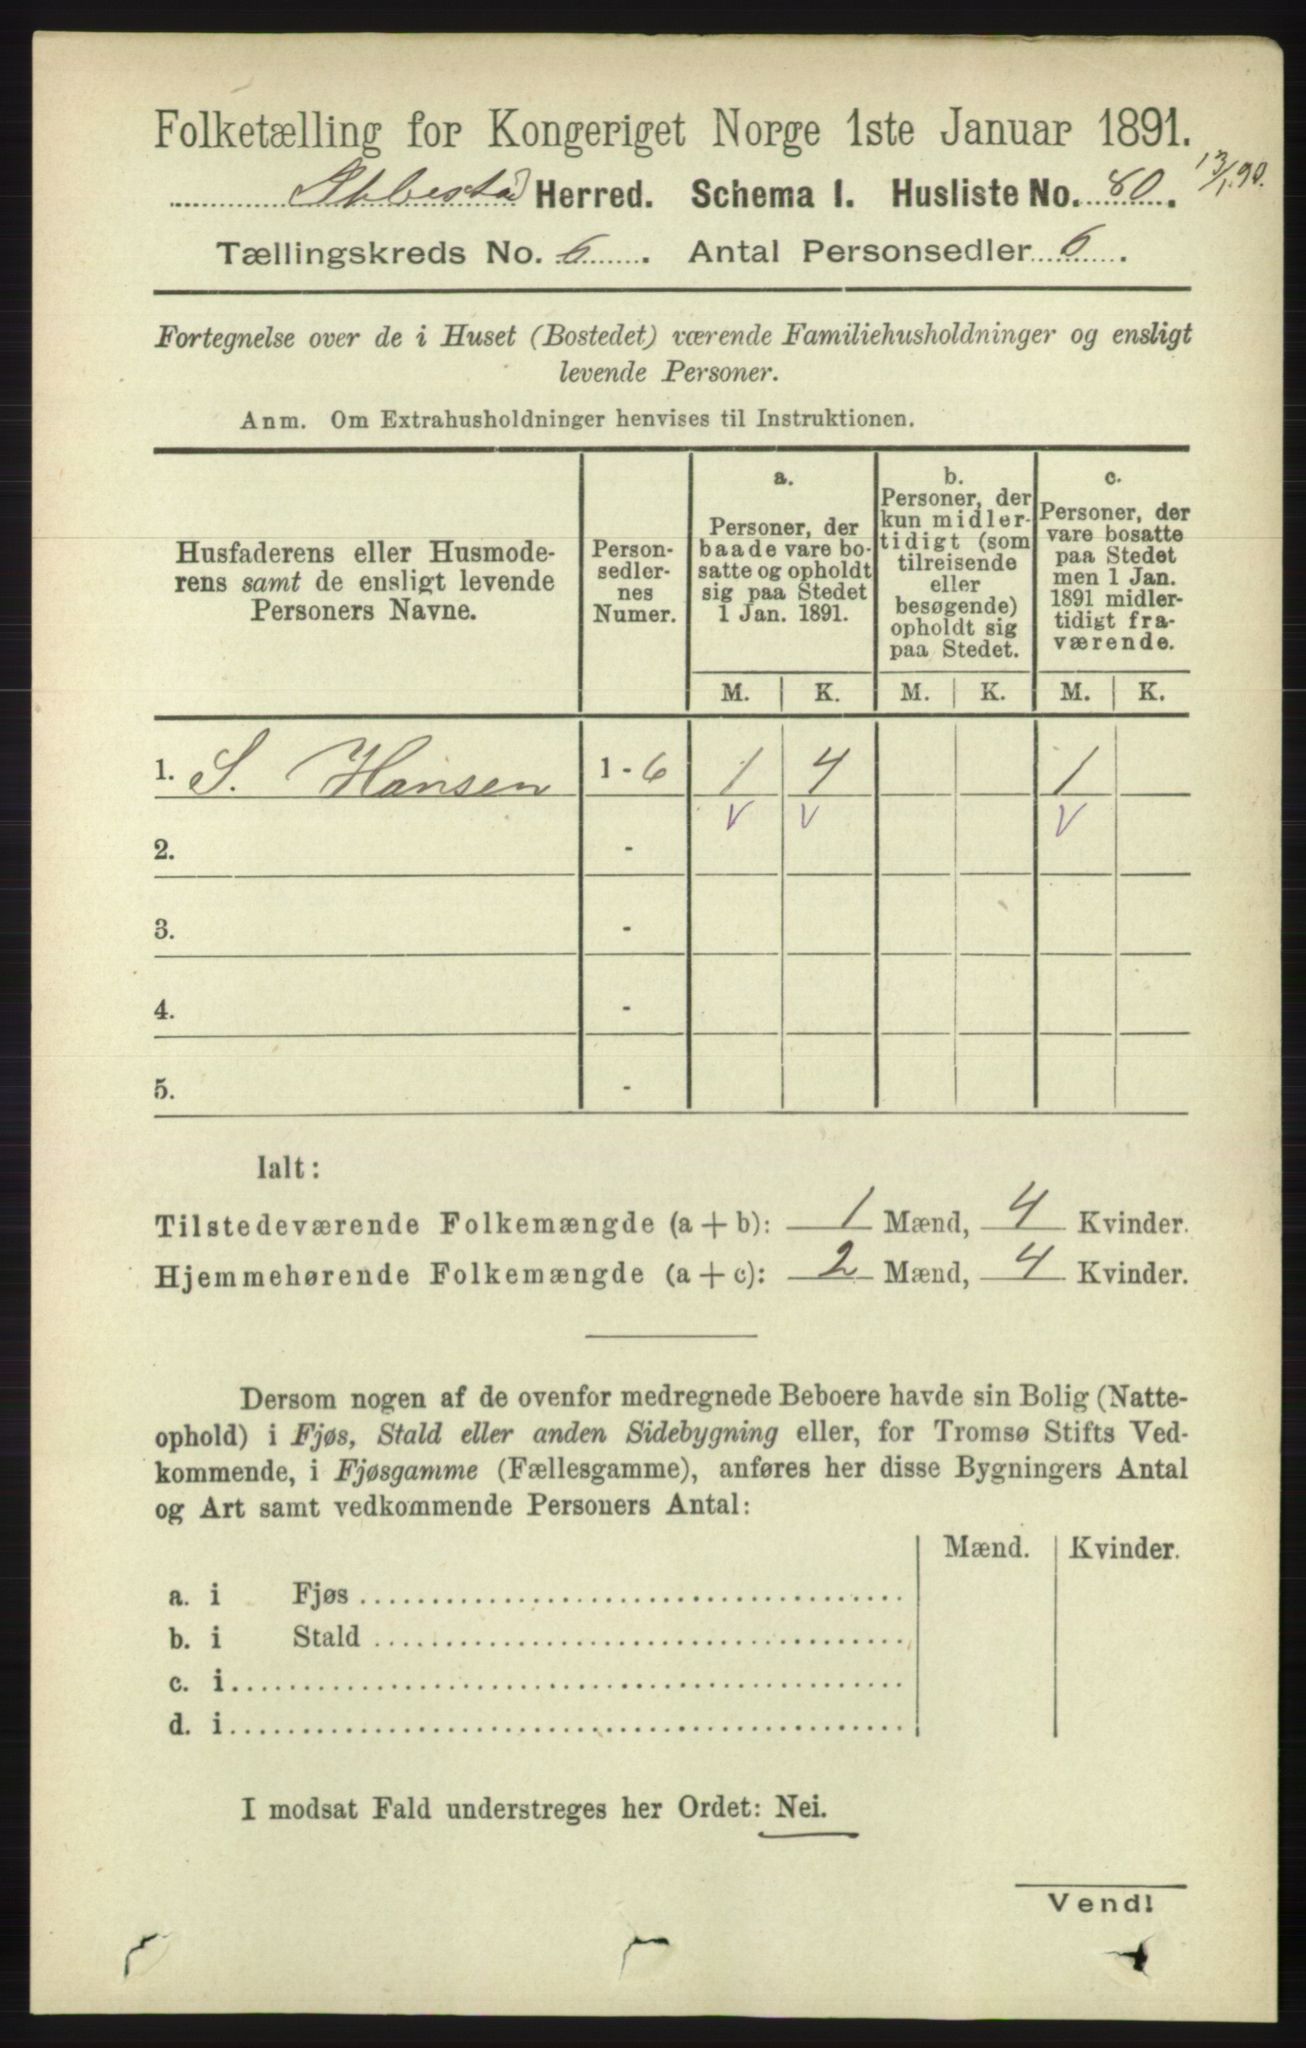 Folketælling for Kongeriget Norge 1ste Januar 1891.
Ibbestad Herred. Schema I. Husliste No. 80.
Tællingskreds No. 6. Antal Personsedler 6.
Fortegnelse over de i Huset (Bostedet) værende Familiehusholdninger og ensligt
levende Personer.
Anm. Om Extrahusholdninger henvises til Instruktionen.
Husfaderens eller Husmode-
rens samt de ensligt levende
Personers Navne.
Person-
sedler-
nes
Numer.
a.
Personer, der
baade vare bo-
satte og opholdt
sig paa Stedet
1 Jan. 1891.
b.
Personer, der
kun midler-
tidigt (som
tilreisende
eller
besøgende)
opholdt sig
paa Stedet.
c.
Personer, der
vare bosatte
paa Stedet
men 1 Jan.
1891 midler-
tidigt fra-
værende.
M. K. M. K. M. K.
1. S. Hansen 1 - 6 1 4 1
V V V
2. -
3. -
4. -
5. -
Ialt:
Tilstedeværende Folkemængde (a + b): 1 Mænd, 4 Kvinder.
Hjemmehørende Folkemængde (a + c): 2 Mænd, 4 Kvinder.
Dersom nogen af de ovenfor medregnede Beboere havde sin Bolig (Natte-
ophold) i Fjøs, Stald eller anden Sidebygning eller, for Tromsø Stifts Ved-
kommende, i Fjøsgamme (Fællesgamme), anføres her disse Bygningers Antal
og Art samt vedkommende Personers Antal:
Mænd. Kvinder.
a. i Fjøs
b. i Stald
c. i
d. i
I modsat Fald understreges her Ordet: Nei.
Vend!